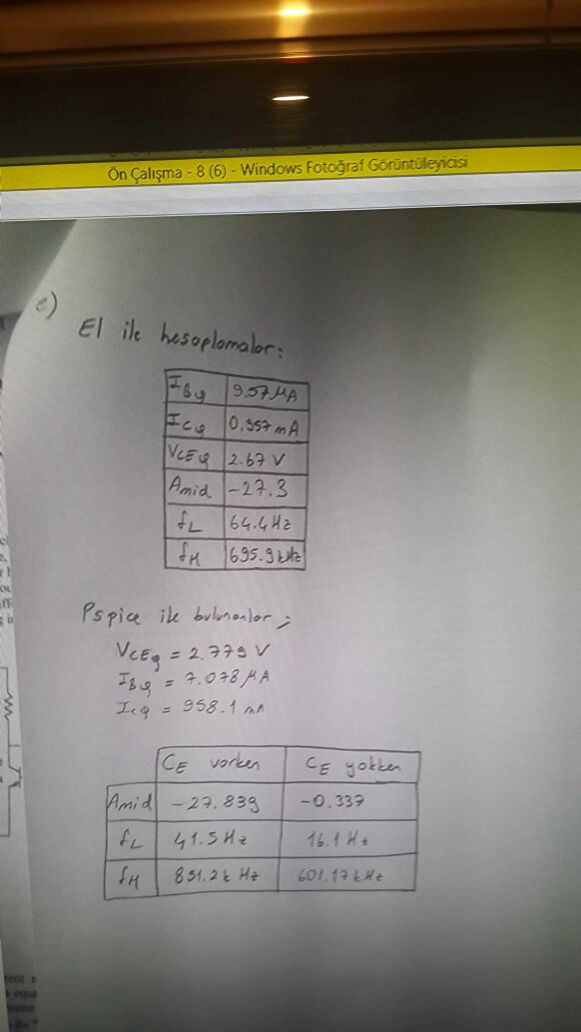 Ön Çalışma - 8 (6) - Windows Fotoğraf Görüntüleyicisi
e)
El ile hesaplamalar:
IBQ 9.57 µA
ICQ 0.957 mA
VCEQ 2.67 V
Amid -27.3
fL 64.4 Hz
fH 695.9 kHz
Pspice ile bulunanlar;
VCEQ = 2.779 V
IBQ = 7.078 µA
ICQ = 958.1 mA
CE varken CE yokken
Amid -27.839 -0.337
fL 41.5 Hz 16.1 Hz
fH 851.2 k Hz 601.17 kHz